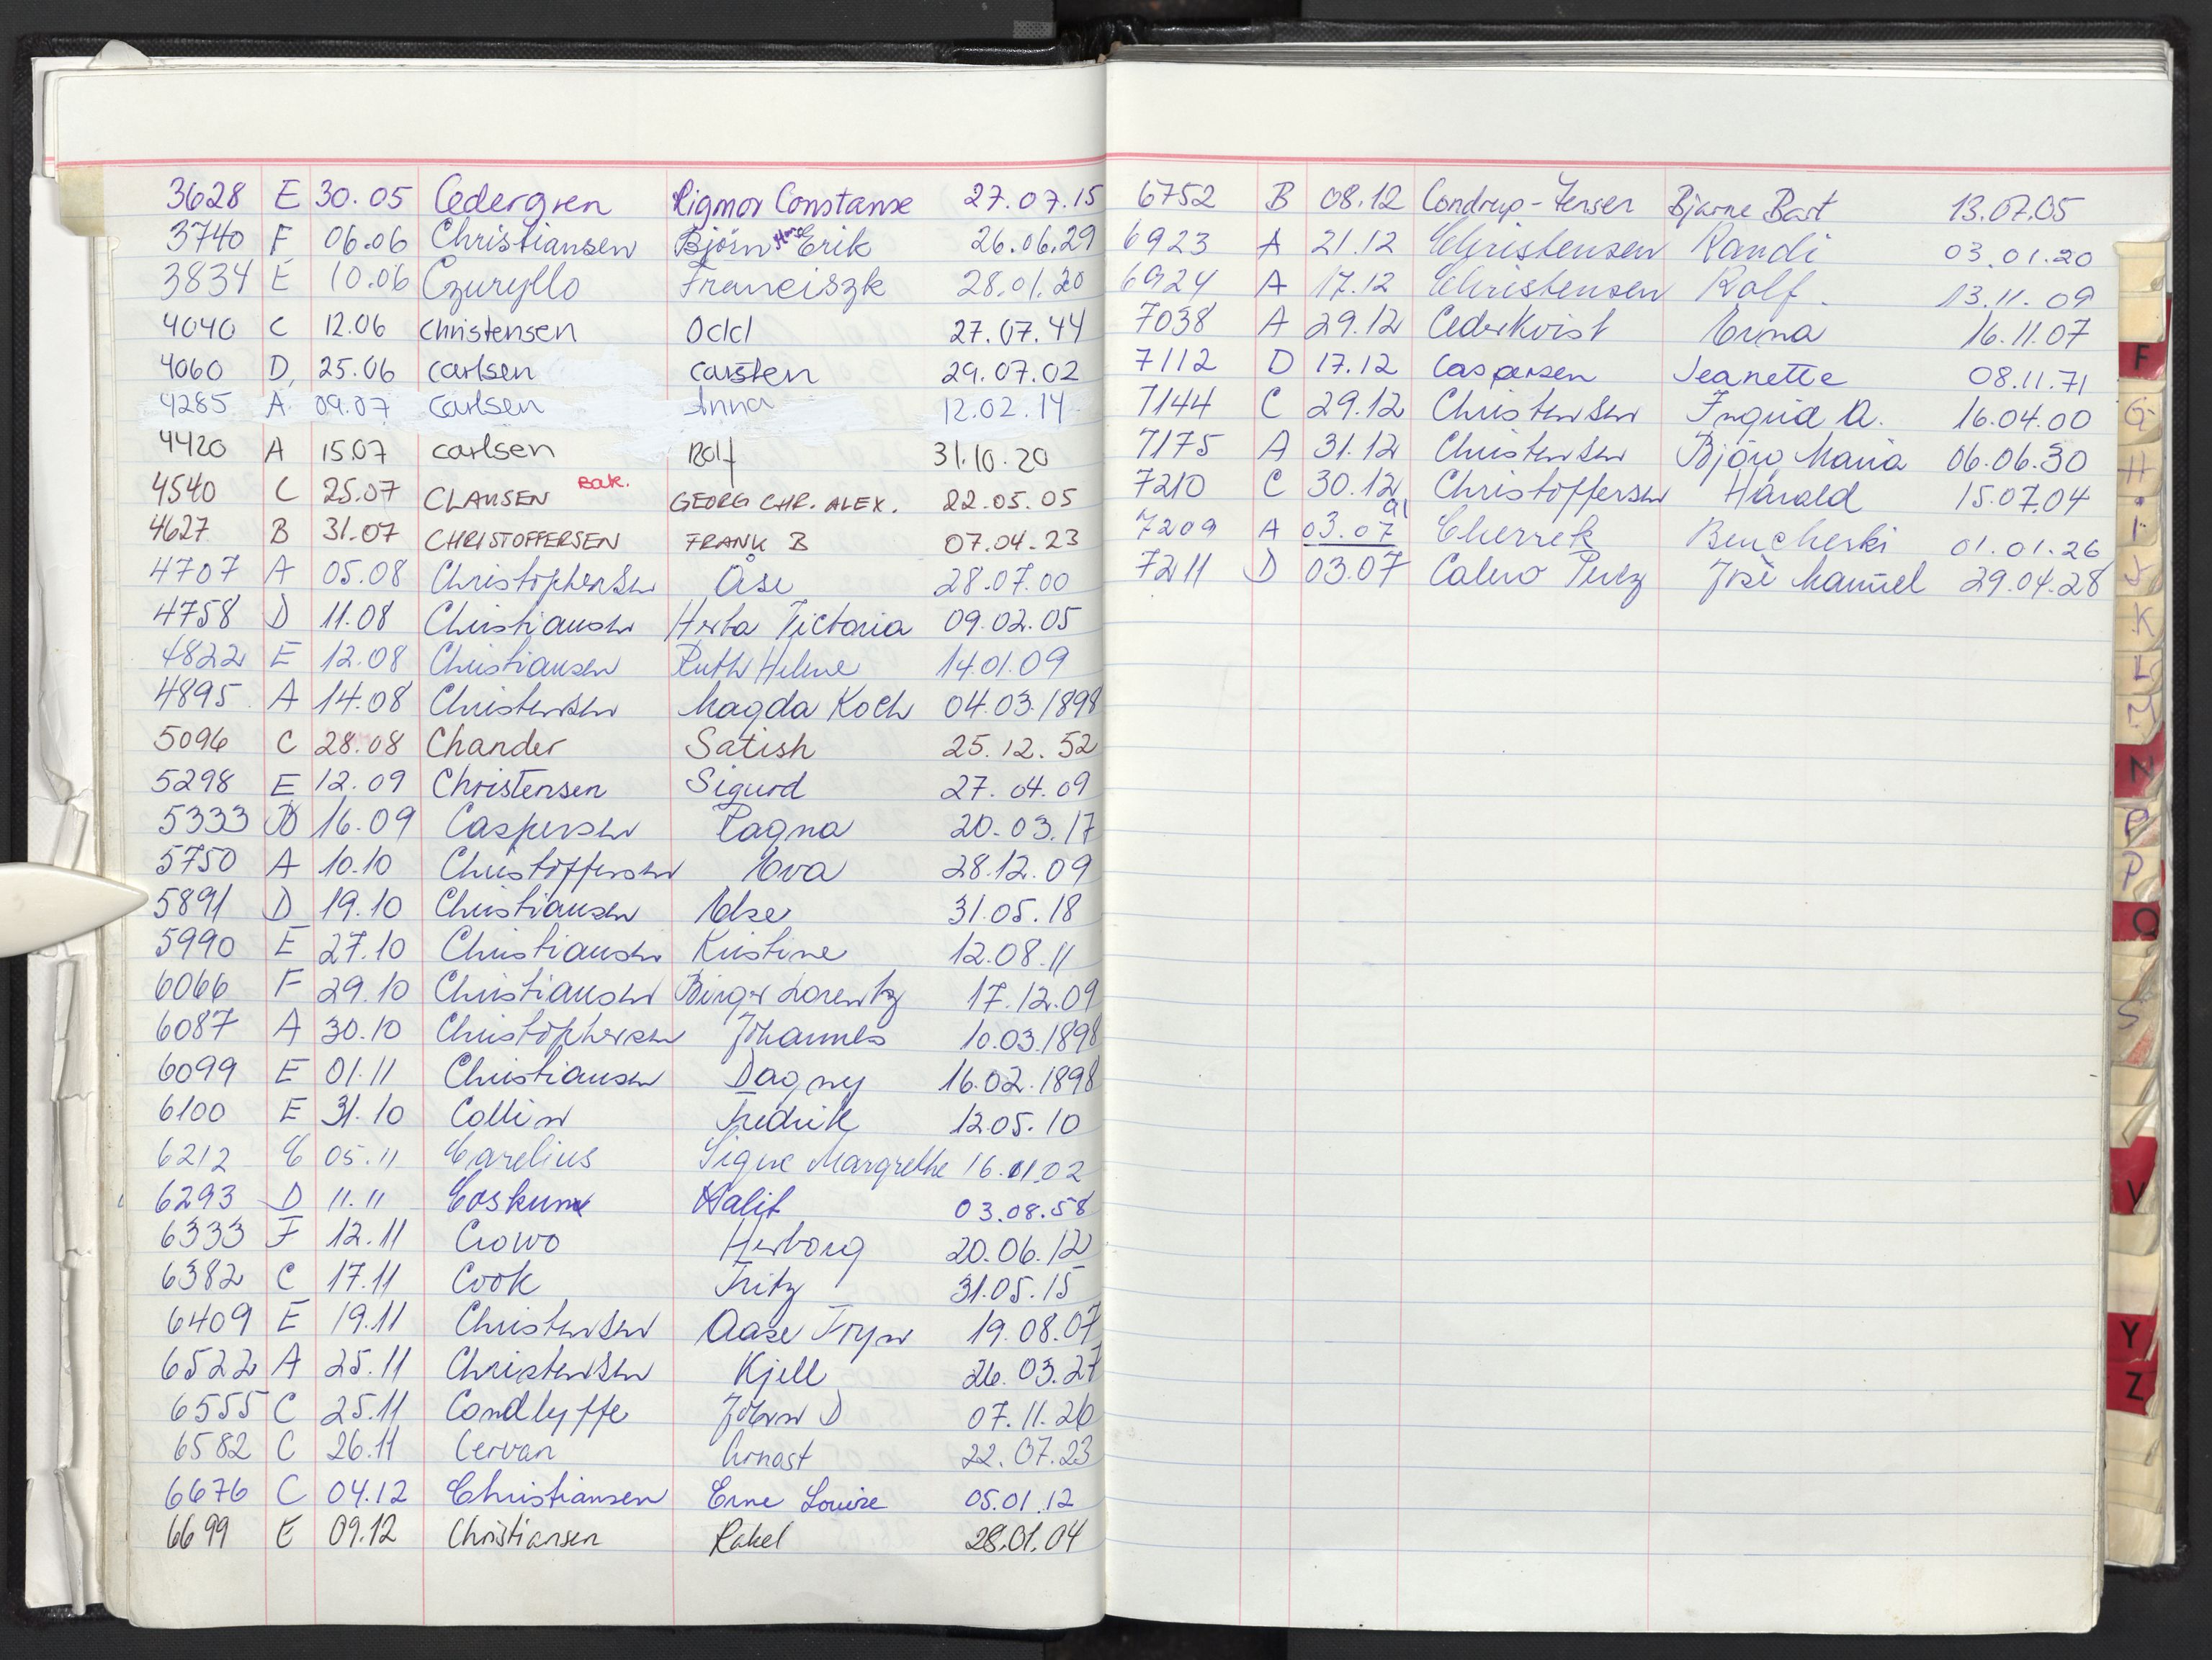 3628 E 30.05 Cedergren Rigmor Constanse 27.07.15
3740 F 06.06 Christiansen Bjørn Erik 26.06.29
3834 E 10.06 Czuryllo Franciszk 28.01.20
4040 C 12.06 Christensen Odd 27.07.44
4060 D 25.06 Carlsen Carsten 29.07.02
4285 A 09.07 Carlsen Anna 12.02.14
4420 A 15.07 Carlsen Rolf 31.10.20
4540 C 25.07 CLAUSEN BAK. GEORG CHR. ALEX. 22.05.05
4627 B 31.07 CHRISTOFFERSEN FRANK B 07.04.23
4707 A 05.08 Christophersen Åse 28.07.00
4758 D 11.08 Christiansen Herta Victoria 09.02.05
4822 E 12.08 Christiansen Ruth Helene 14.01.09
4895 A 14.08 Christensen Magda Koch 04.03.1898
5096 C 28.08 Chander Satish 25.12.52
5298 E 12.09 Christensen Sigurd 27.04.09
5333 D 16.09 Caspersen Ragna 20.03.17
5750 A 10.10 Christoffersen Eva 28.12.09
5891 D 19.10 Christiansen Else 31.05.18
5990 E 27.10 Christiansen Kristine 12.08.11
6066 F 29.10 Christiansen Birger Lorentz 17.12.09
6087 A 30.10 Christophersen Johannes 10.03.1898
6099 E 01.11 Christiansen Dagny 16.02.1898
6100 E 31.10 Collin Fredrik 12.05.10
6212 E 05.11 Carelius Signe Margrethe 16.01.02
6293 D 11.11 Coskun Halit 03.08.58
6333 F 12.11 Crowo Herborg 20.06.12
6382 C 17.11 Cook Fritz 31.05.15
6409 E 19.11 Christensen Aase Fryn 19.08.07
6522 A 25.11 Christensen Kjell 26.03.27
6555 C 25.11 Condlyffe John D 07.11.26
6582 C 26.11 Cervan Ernast 22.07.23
6676 C 04.12 Christiansen Erne Louise 05.01.12
6699 E 09.12 Christiansen Rakel 28.01.04
6752 B 08.12 Condrup-Jensen Bjarne Bart 13.07.05
6923 A 21.12 Christensen Randi 03.01.20
6924 A 17.12 Christensen Rolf 13.11.09
7038 A 29.12 Cederkvist Erna 16.11.07
7112 D 17.12 Caspersen Jeanette 08.11.71
7144 C 29.12 Christensen Ingrid A. 16.04.00
7175 A 31.12 Christensen Bjørg Maria 06.06.30
7210 C 30.12 Christoffersen Harald 15.07.04
7209 A 03.07 91 Cherrek Bencherki 01.01.26
7211 D 03.07 Calero Perez José Manuel 29.04.28
F
G
H
I
J
K
L
M
N
P
Q
S
V
Y
Z